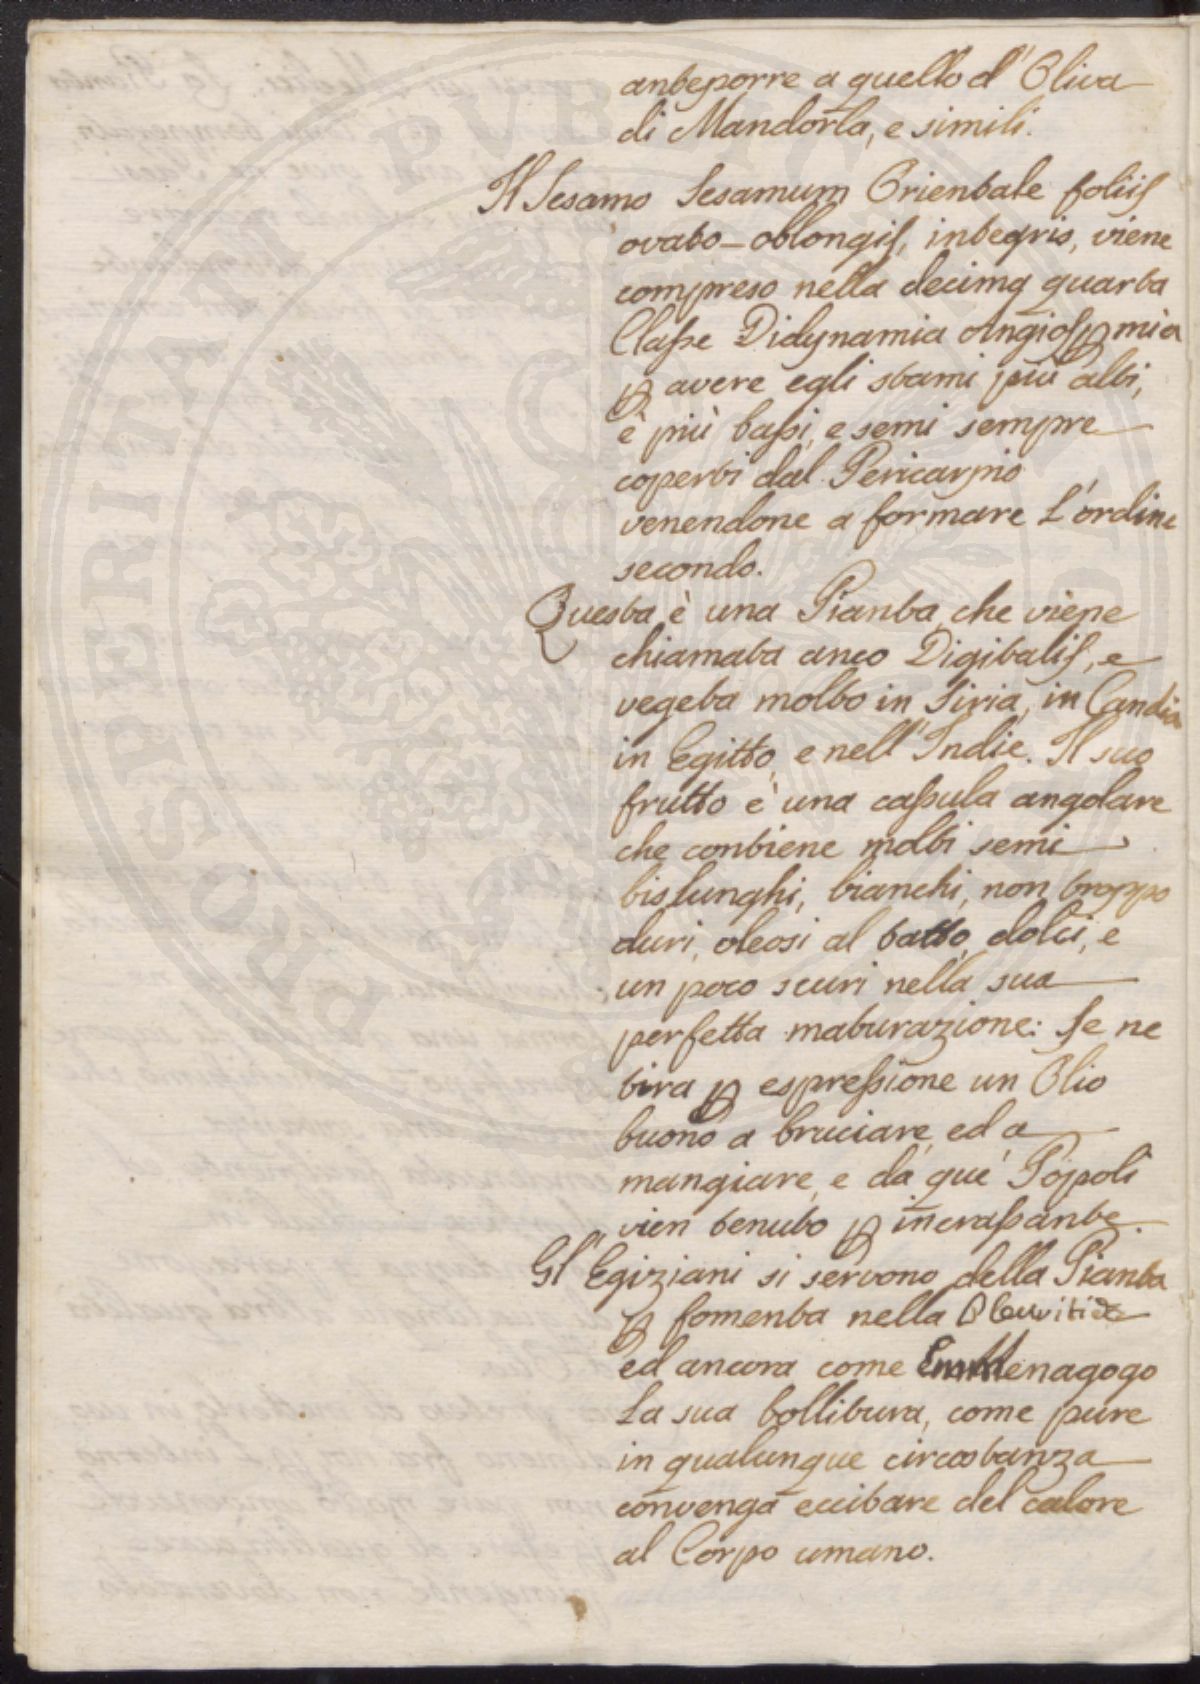 anteporre a quello d'Oliva
di Mandorla, e simili.
Il Sesamo Sesamum Orientale foliis
ovato-oblongis, integris, viene
compreso nella decima quarta
Classe Didynamia Angiospmia
p avere egli stami più alti,
e più bassi, e semi sempre
coperti dal Pericarpio
venendone a formare l'ordine
secondo.
Questa è una Pianta, che viene
chiamata anco Digitalis, e
vegeta molto in Siria, in Candia
in Egitto, e nell'Indie. Il suo
frutto è una cassula angolare
che contiene molti semi
bislunghi, bianchi, non troppo
duri, oleosi al tatto, dolci, e
un poco scuri nella sua
perfetta maturazione: Se ne
tira p espressione un Olio
buono a bruciare, ed a
mangiare, e da que' Popoli
vien tenuto p incrassante.
Gl'Egiziani si servono della Pianta
p fomenta nella Pleuritide
ed ancora come Emmenagogo
La sua bollitura, come pure
in qualunque circostanza
convenga eccitare del calore
al Corpo umano.
PROSPERITATI PVBLICAE